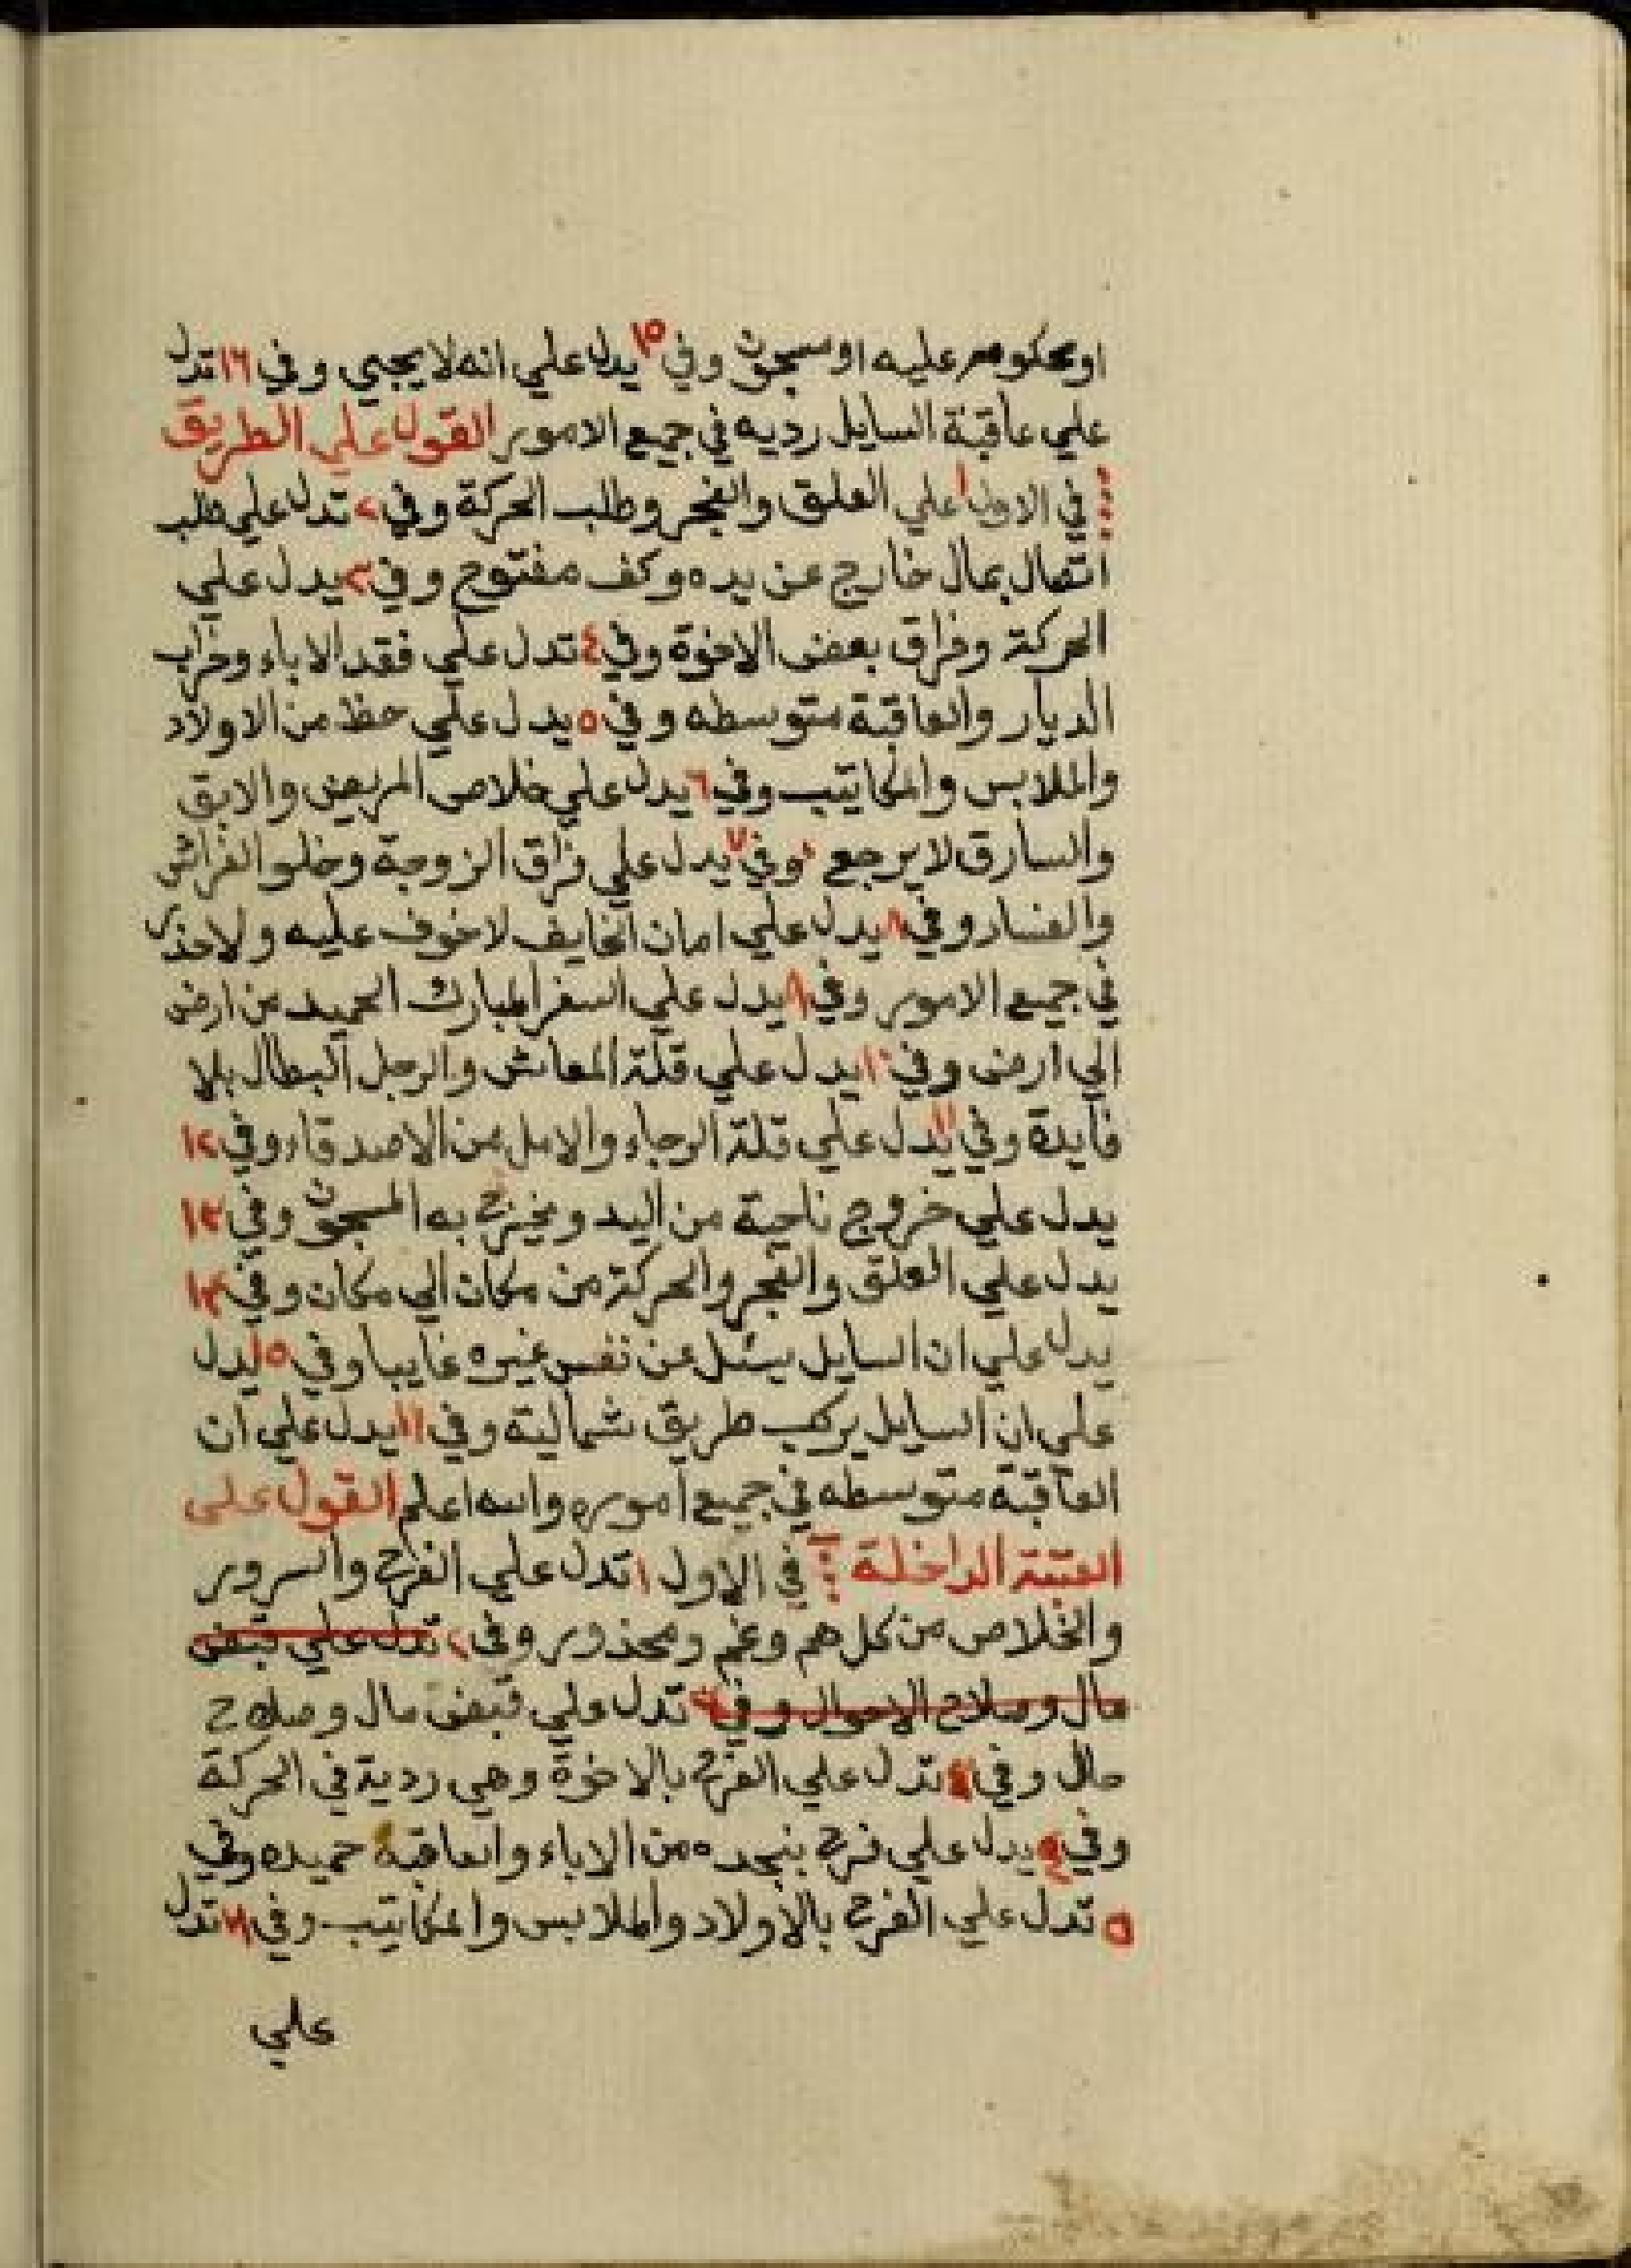 او محكوم عليه او مسجون وفي ١٥ يدل علي انه لا يجبي وفي ١٦ تدل
علي عاقبة السايل رديه في جميع الامور القول علي الطريق
في الاول ١ علي القلق والضجر وطلب الحركة وفي ٢ تدل علي طلب
اتصال بمال خارج عن يده وكف مفتوح وفي ٣ يدل علي
الحركة وفراق بعض الاخوة وفي ٤ تدل علي فقد الاباء وخراب
الديار والعاقبة متوسطه وفي ٥ يدل علي حظ من الاولاد
والملابس والمكاتيب وفي ٦ يدل علي خلاص المريض والابق
والسارق لا يرجع وفي ٧ يدل علي فراق الزوجة وخلو الفراش
والفساد وفي ٨ يدل علي امان الخايف لا خوف عليه ولا حذر
في جميع الامور وفي ٩ يدل علي السفر المبارك الحميد من ارض
الي ارض وفي ١٠ يدل علي قلة المعاش والرجل البطال بلا
فايدة وفي ١١ يدل علي قلة الرجاء والامل من الاصدقاء وفي ١٢
يدل علي خروج ناحية من اليد ويخرج به المسجون وفي ١٣
يدل علي القلق والضجر والحركة من مكان الي مكان وفي ١٤
يدل علي ان السايل يسئل عن نفس غيره غايبا وفي ١٥ يدل
علي ان السايل يركب طريق شمالية وفي ١٦ يدل علي ان
العاقبة متوسطه في جميع اموره والله اعلم القول علي
العتبة الداخلة في الاول ١ تدل علي الفرح والسرور
والخلاص من كل هم وغم ومحذور وفي ٢ تدل علي قبض
مال وصلاح الاحوال وفي ٣ تدل علي قبض مال وصلاح
حال وفي تدل علي الفرح بالاخوة وهي ردية في الحركة
وفي ٤ يدل علي فرح بنجده من الاباء والعاقبة حميده وفي
٥ تدل علي الفرح بالاولاد والملابس والمكاتيب وفي تدل
علي